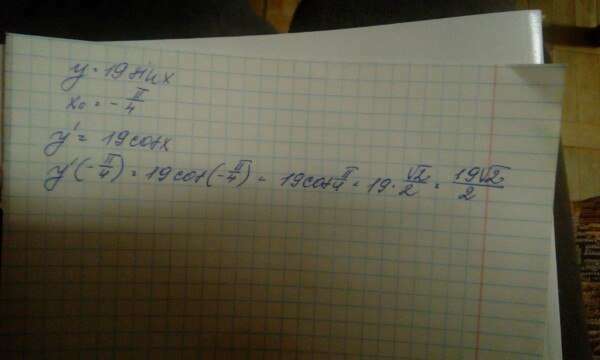 y = 19 sin x
x₀ = -π/4
y' = 19 cos x
y'(-π/4) = 19 cos(-π/4) = 19 cos π/4 = 19 · √2/2 = 19√2/2